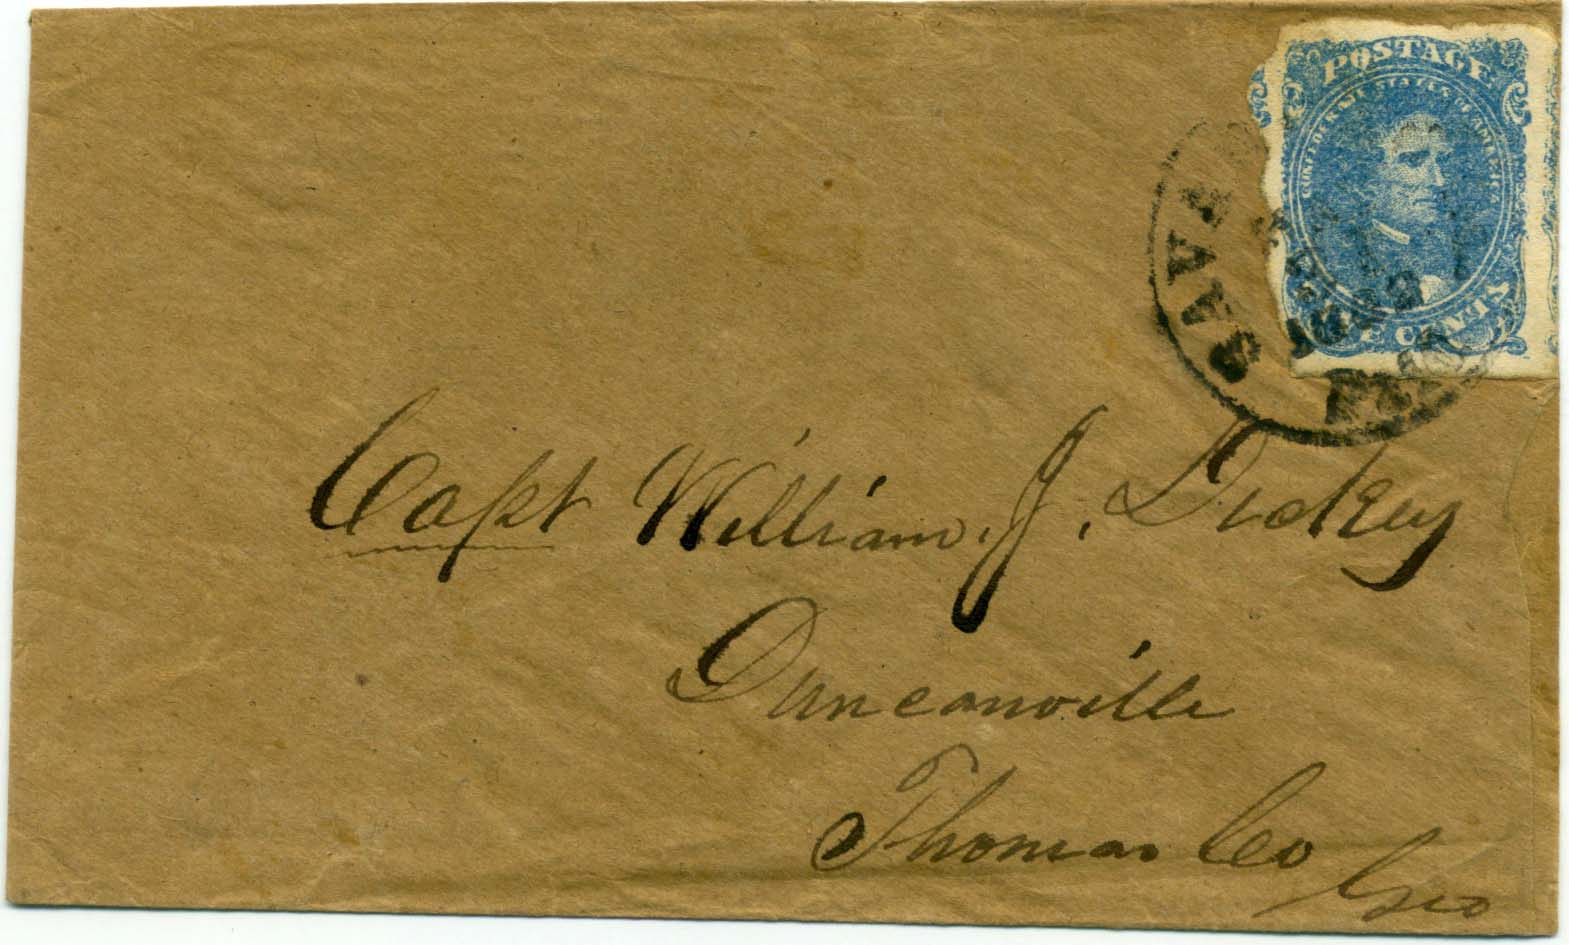 POSTAGE
CONFEDERATE STATES OF AMERICA
CENTS
SAVA
Capt William. J. Dickey
Duncanville
Thomas Co
Geo